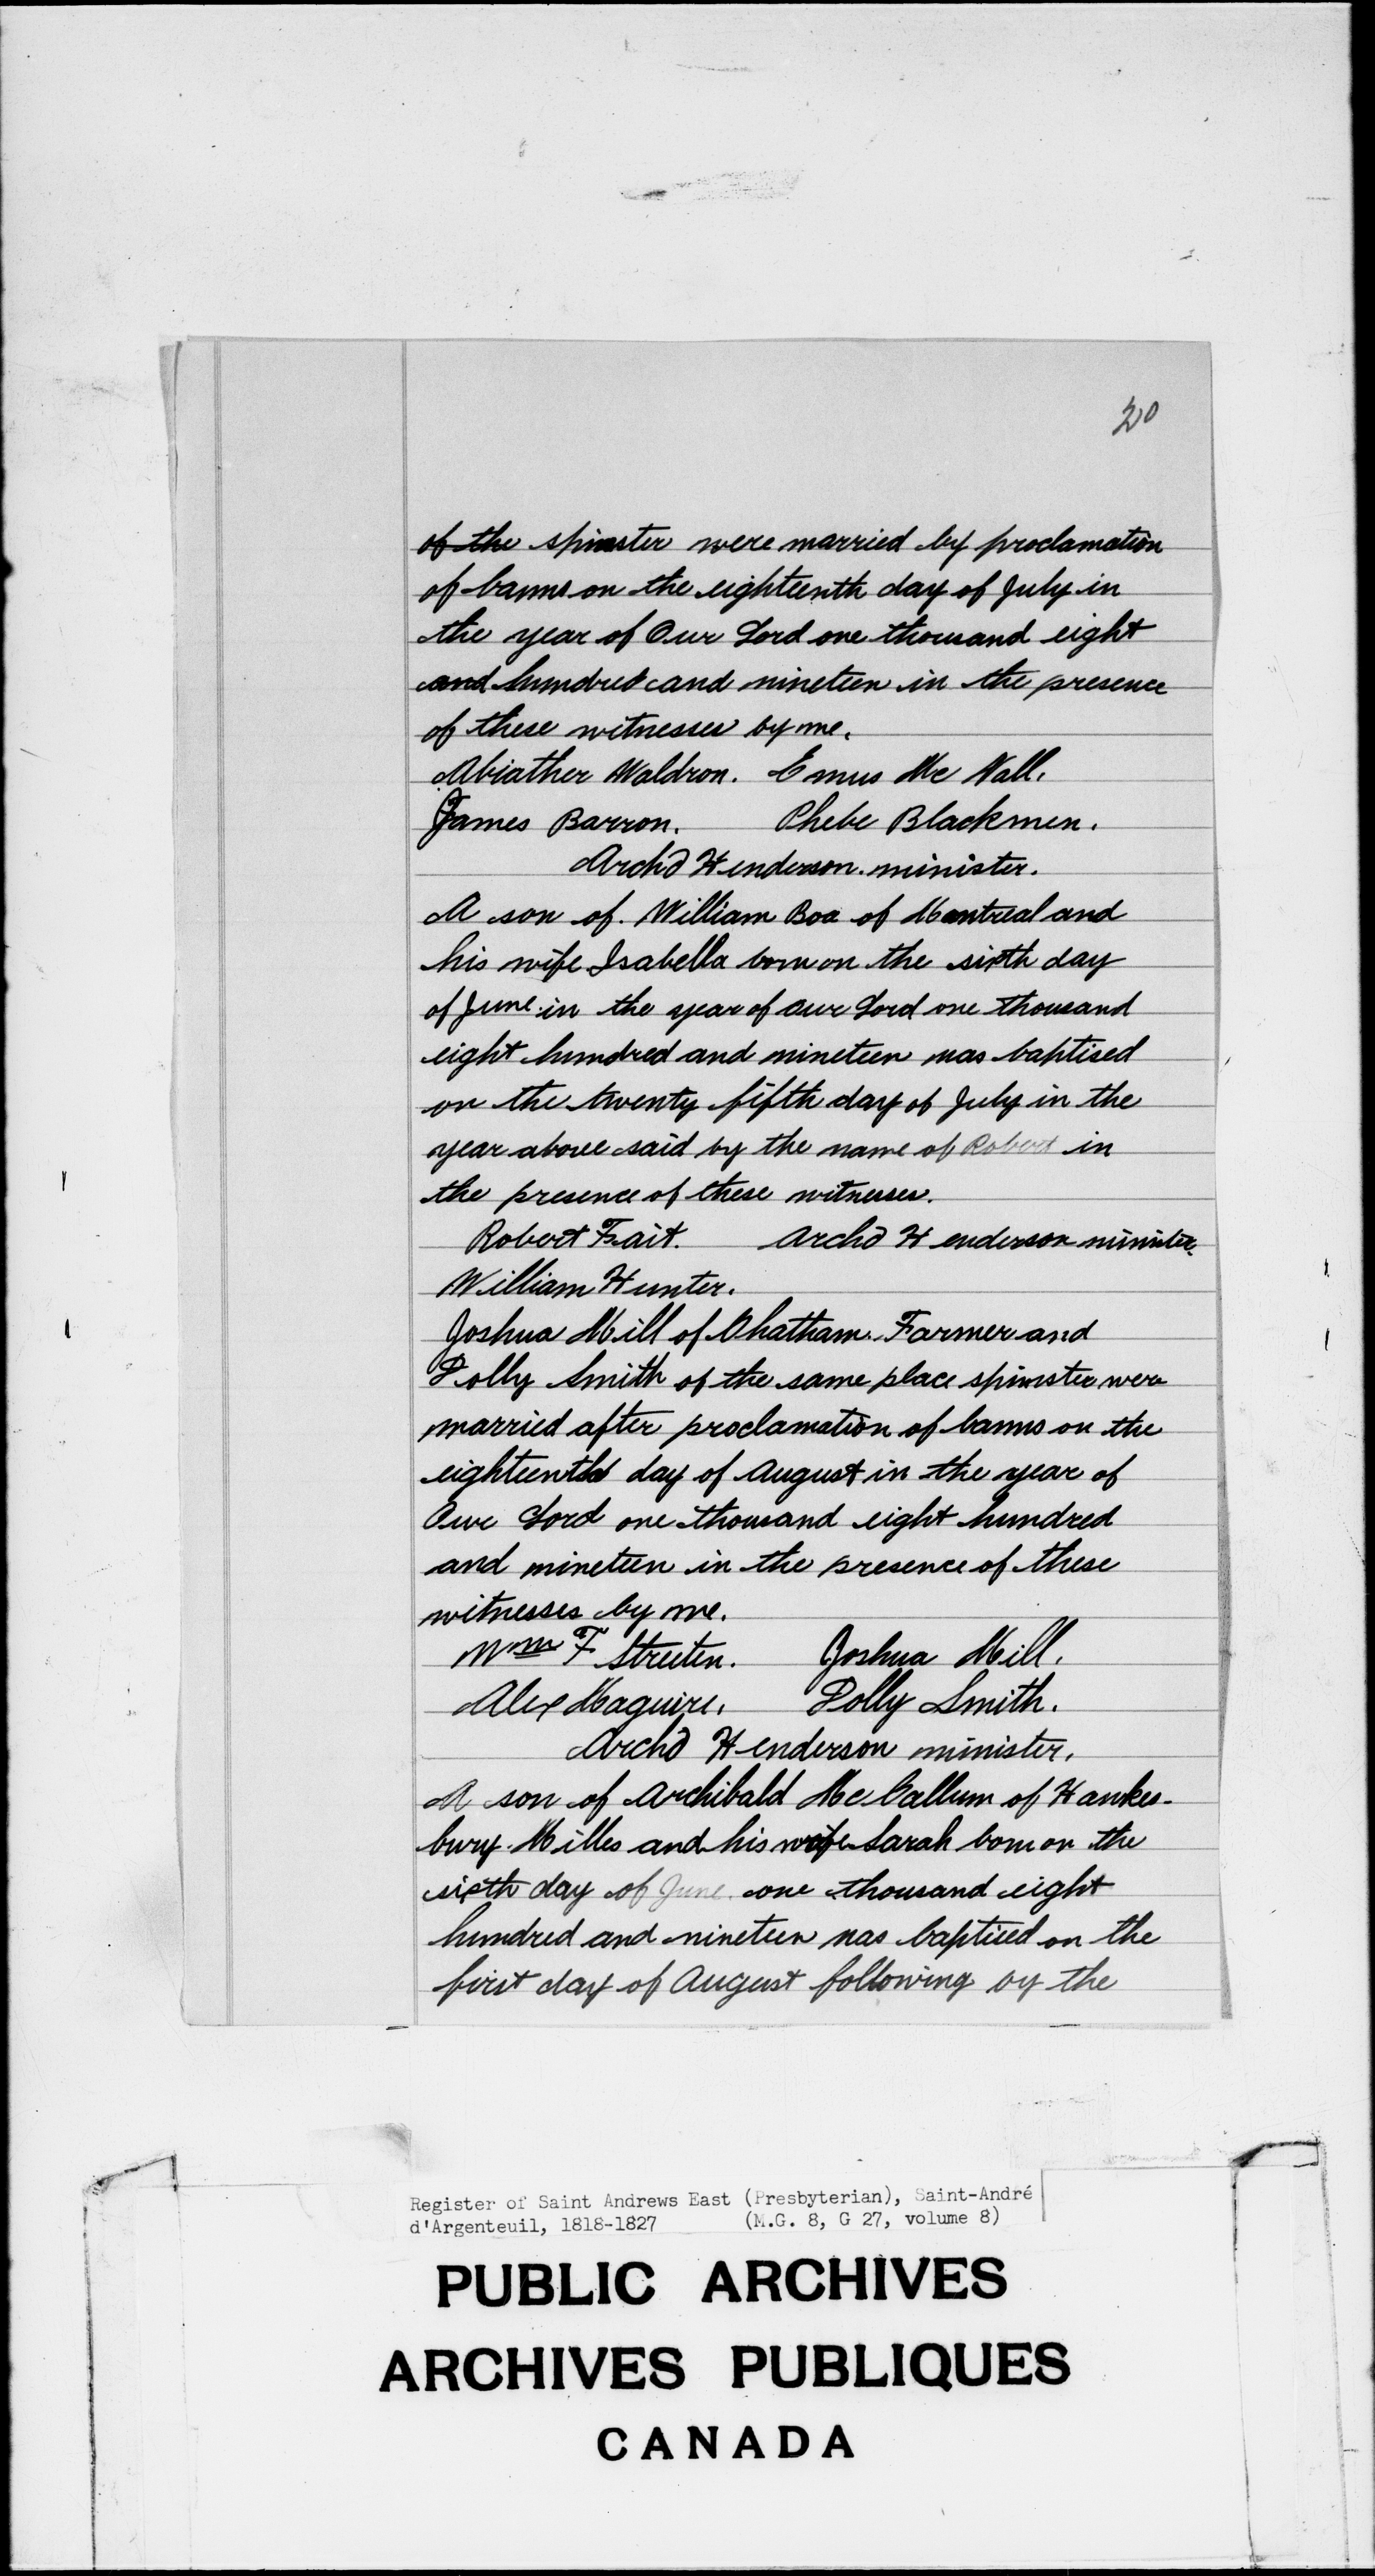 20
of the spinster were married by proclamation
of banns on the eighteenth day of July in
the year of Our Lord one thousand eight
and hundred and nineteen in the presence
of these witnesses by me.
Abiather Waldron. Emus Mc Nall.
James Barron. Phebe Blackmen.
Archd Henderson minister.
A son of William Boa of Montreal and
his wife Isabella born on the sixth day
of June in the year of Our Lord one thousand
eight hundred and nineteen was baptised
on the twenty fifth day of July in the
year above said by the name of Robert in
the presence of these witnesses.
Robert Tait. Archd Henderson minister.
William Hunter.
Joshua Mill of Chatham Farmer and
Polly Smith of the same place spinster were
married after proclamation of banns on the
eighteenth day of August in the year of
Our Lord one thousand eight hundred
and nineteen in the presence of these
witnesses by me.
Wm F Streeten. Joshua Mill.
Alex Maguire. Polly Smith.
Archd Henderson minister.
A son of Archibald Mc Callum of Hawkes-
bury Milles and his wife Sarah born on the
sixth day of June one thousand eight
hundred and nineteen was baptised on the
first day of August following by the
Register of Saint Andrews East (Presbyterian), Saint-André
d'Argenteuil, 1818-1827 (M.G. 8, G 27, volume 8)
PUBLIC ARCHIVES
ARCHIVES PUBLIQUES
CANADA